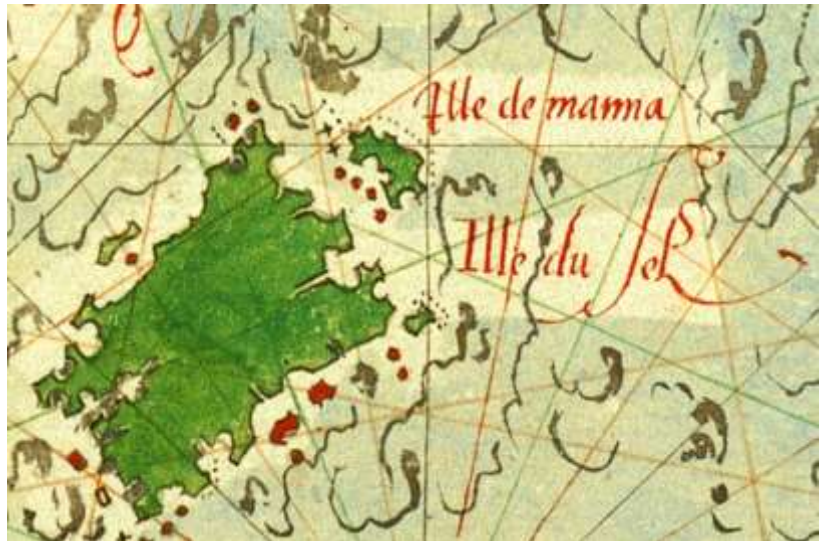 Ille de manna
Ille du sel